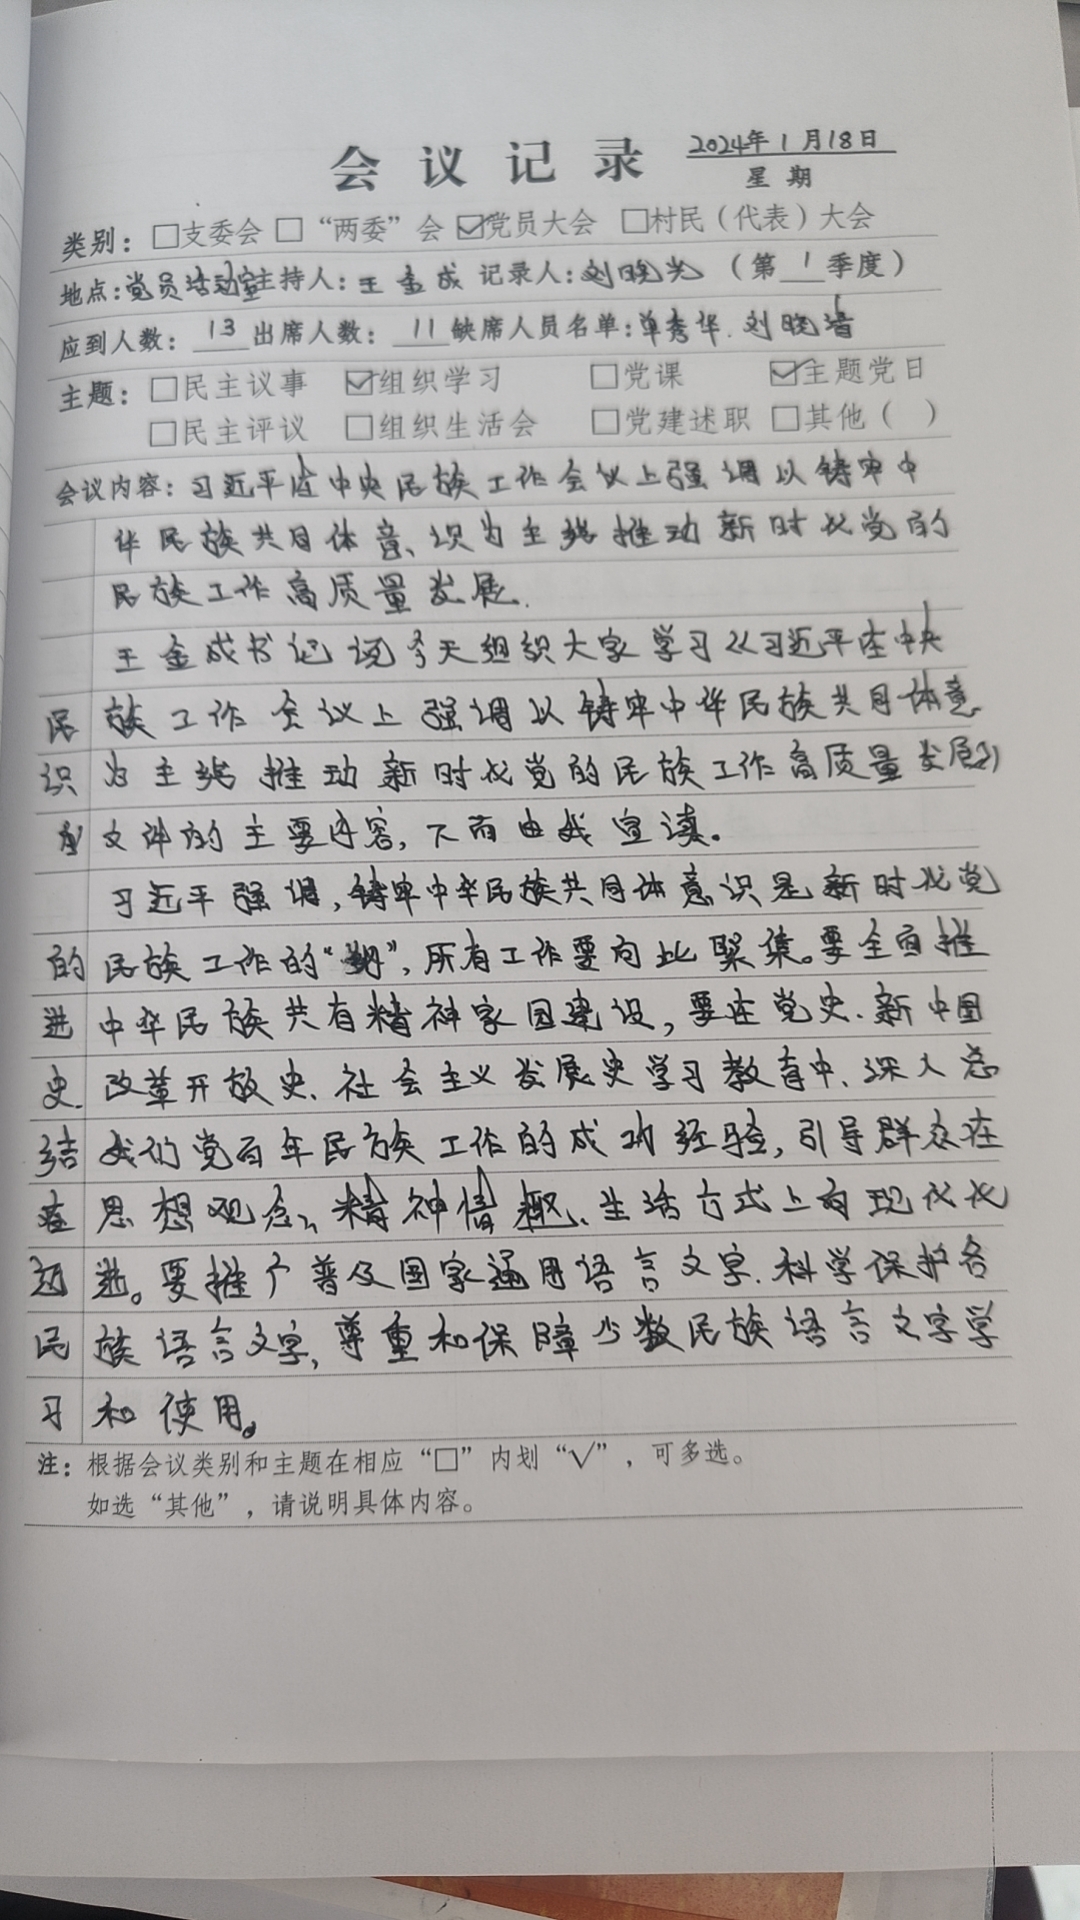 会议记录 2024年1月18日
星期
类别：□支委会 □“两委”会 ☑党员大会 □村民（代表）大会
地点：党员活动室 主持人：王金成 记录人：刘晓光 （第1季度）
应到人数：13 出席人数：11 缺席人员名单：单秀华.刘晓清
主题：□民主议事 ☑组织学习 □党课 ☑主题党日
□民主评议 □组织生活会 □党建述职 □其他（ ）
会议内容：习近平在中央民族工作会议上强调以铸牢中
华民族共同体意识为主线推动新时代党的
民族工作高质量发展.
王金成书记说今天组织大家学习《习近平在中央
民族工作会议上强调以铸牢中华民族共同体意
识为主线推动新时代党的民族工作高质量发展》
文件的主要内容，下面由我宣读。
习近平强调，铸牢中华民族共同体意识是新时代党
的民族工作的“纲”，所有工作要向此聚集。要全面推
进中华民族共有精神家园建设，要在党史、新中国
史.改革开放史、社会主义发展史学习教育中、深入总
结我们党百年民族工作的成功经验，引导群众在
在思想观念、精神情趣、生活方式上向现代化
迈进。要推广普及国家通用语言文字.科学保护各
民族语言文字，尊重和保障少数民族语言文字学
习和使用。
注：根据会议类别和主题在相应“□”内划“√”，可多选。
如选“其他”，请说明具体内容。